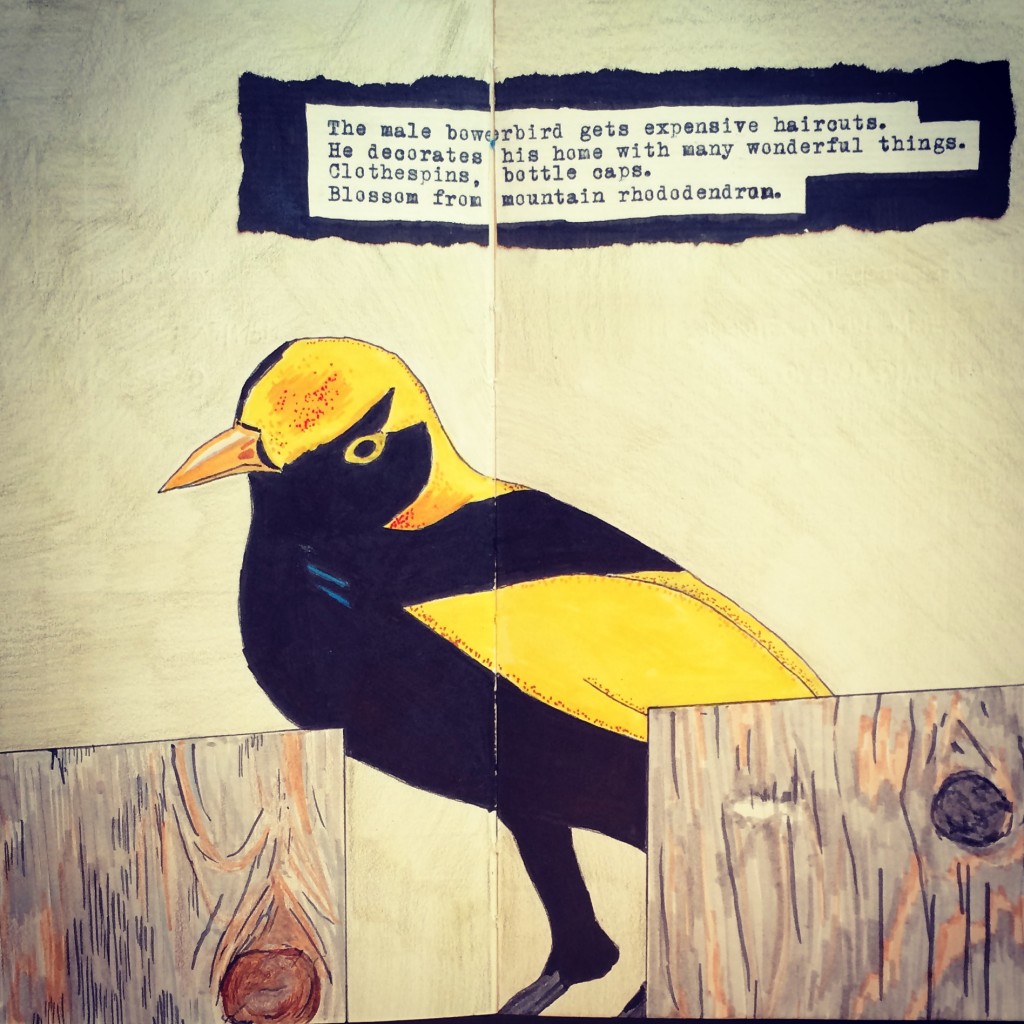 The male bowerbird gets expensive haircuts.
He decorates his home with many wonderful things.
Clothespins, bottle caps.
Blossom from mountain rhododendron.